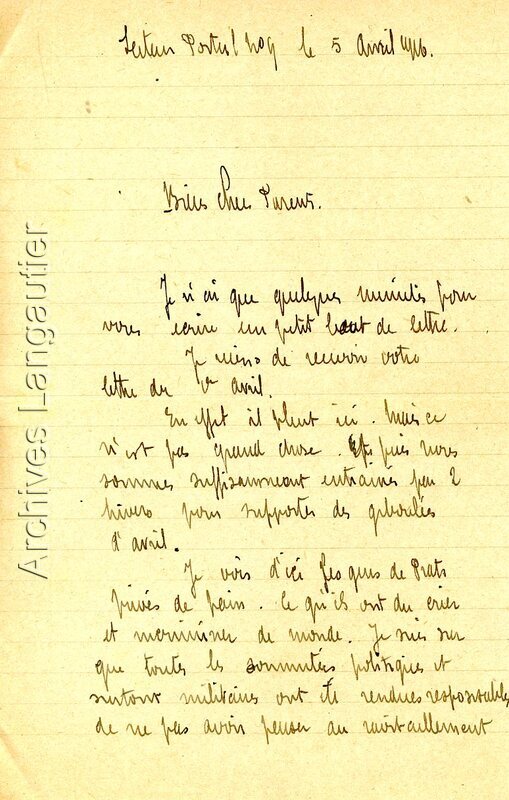 Secteur Postal 209 le 5 Avril 1916.
Bien chers Parents.
Je n'ai que quelques minutes pour
vous écrire un petit bout de lettre.
Je viens de recevoir votre
lettre du 1er avril.
En effet il pleut ici. Mais ce
n'est pas grand chose. Et puis nous
sommes suffisamment entrainés par 2
hivers pour supporter des giboulées
d'avril.
Je vois d'ici les gens de Prats
privés de pain. Ce qu'ils ont du crier
et incriminer de monde. Je suis sur
que toutes les sommités politiques et
surtout militaires ont été rendues responsables
de ne pas avoir penser au ravitaillement
Archives Langautier